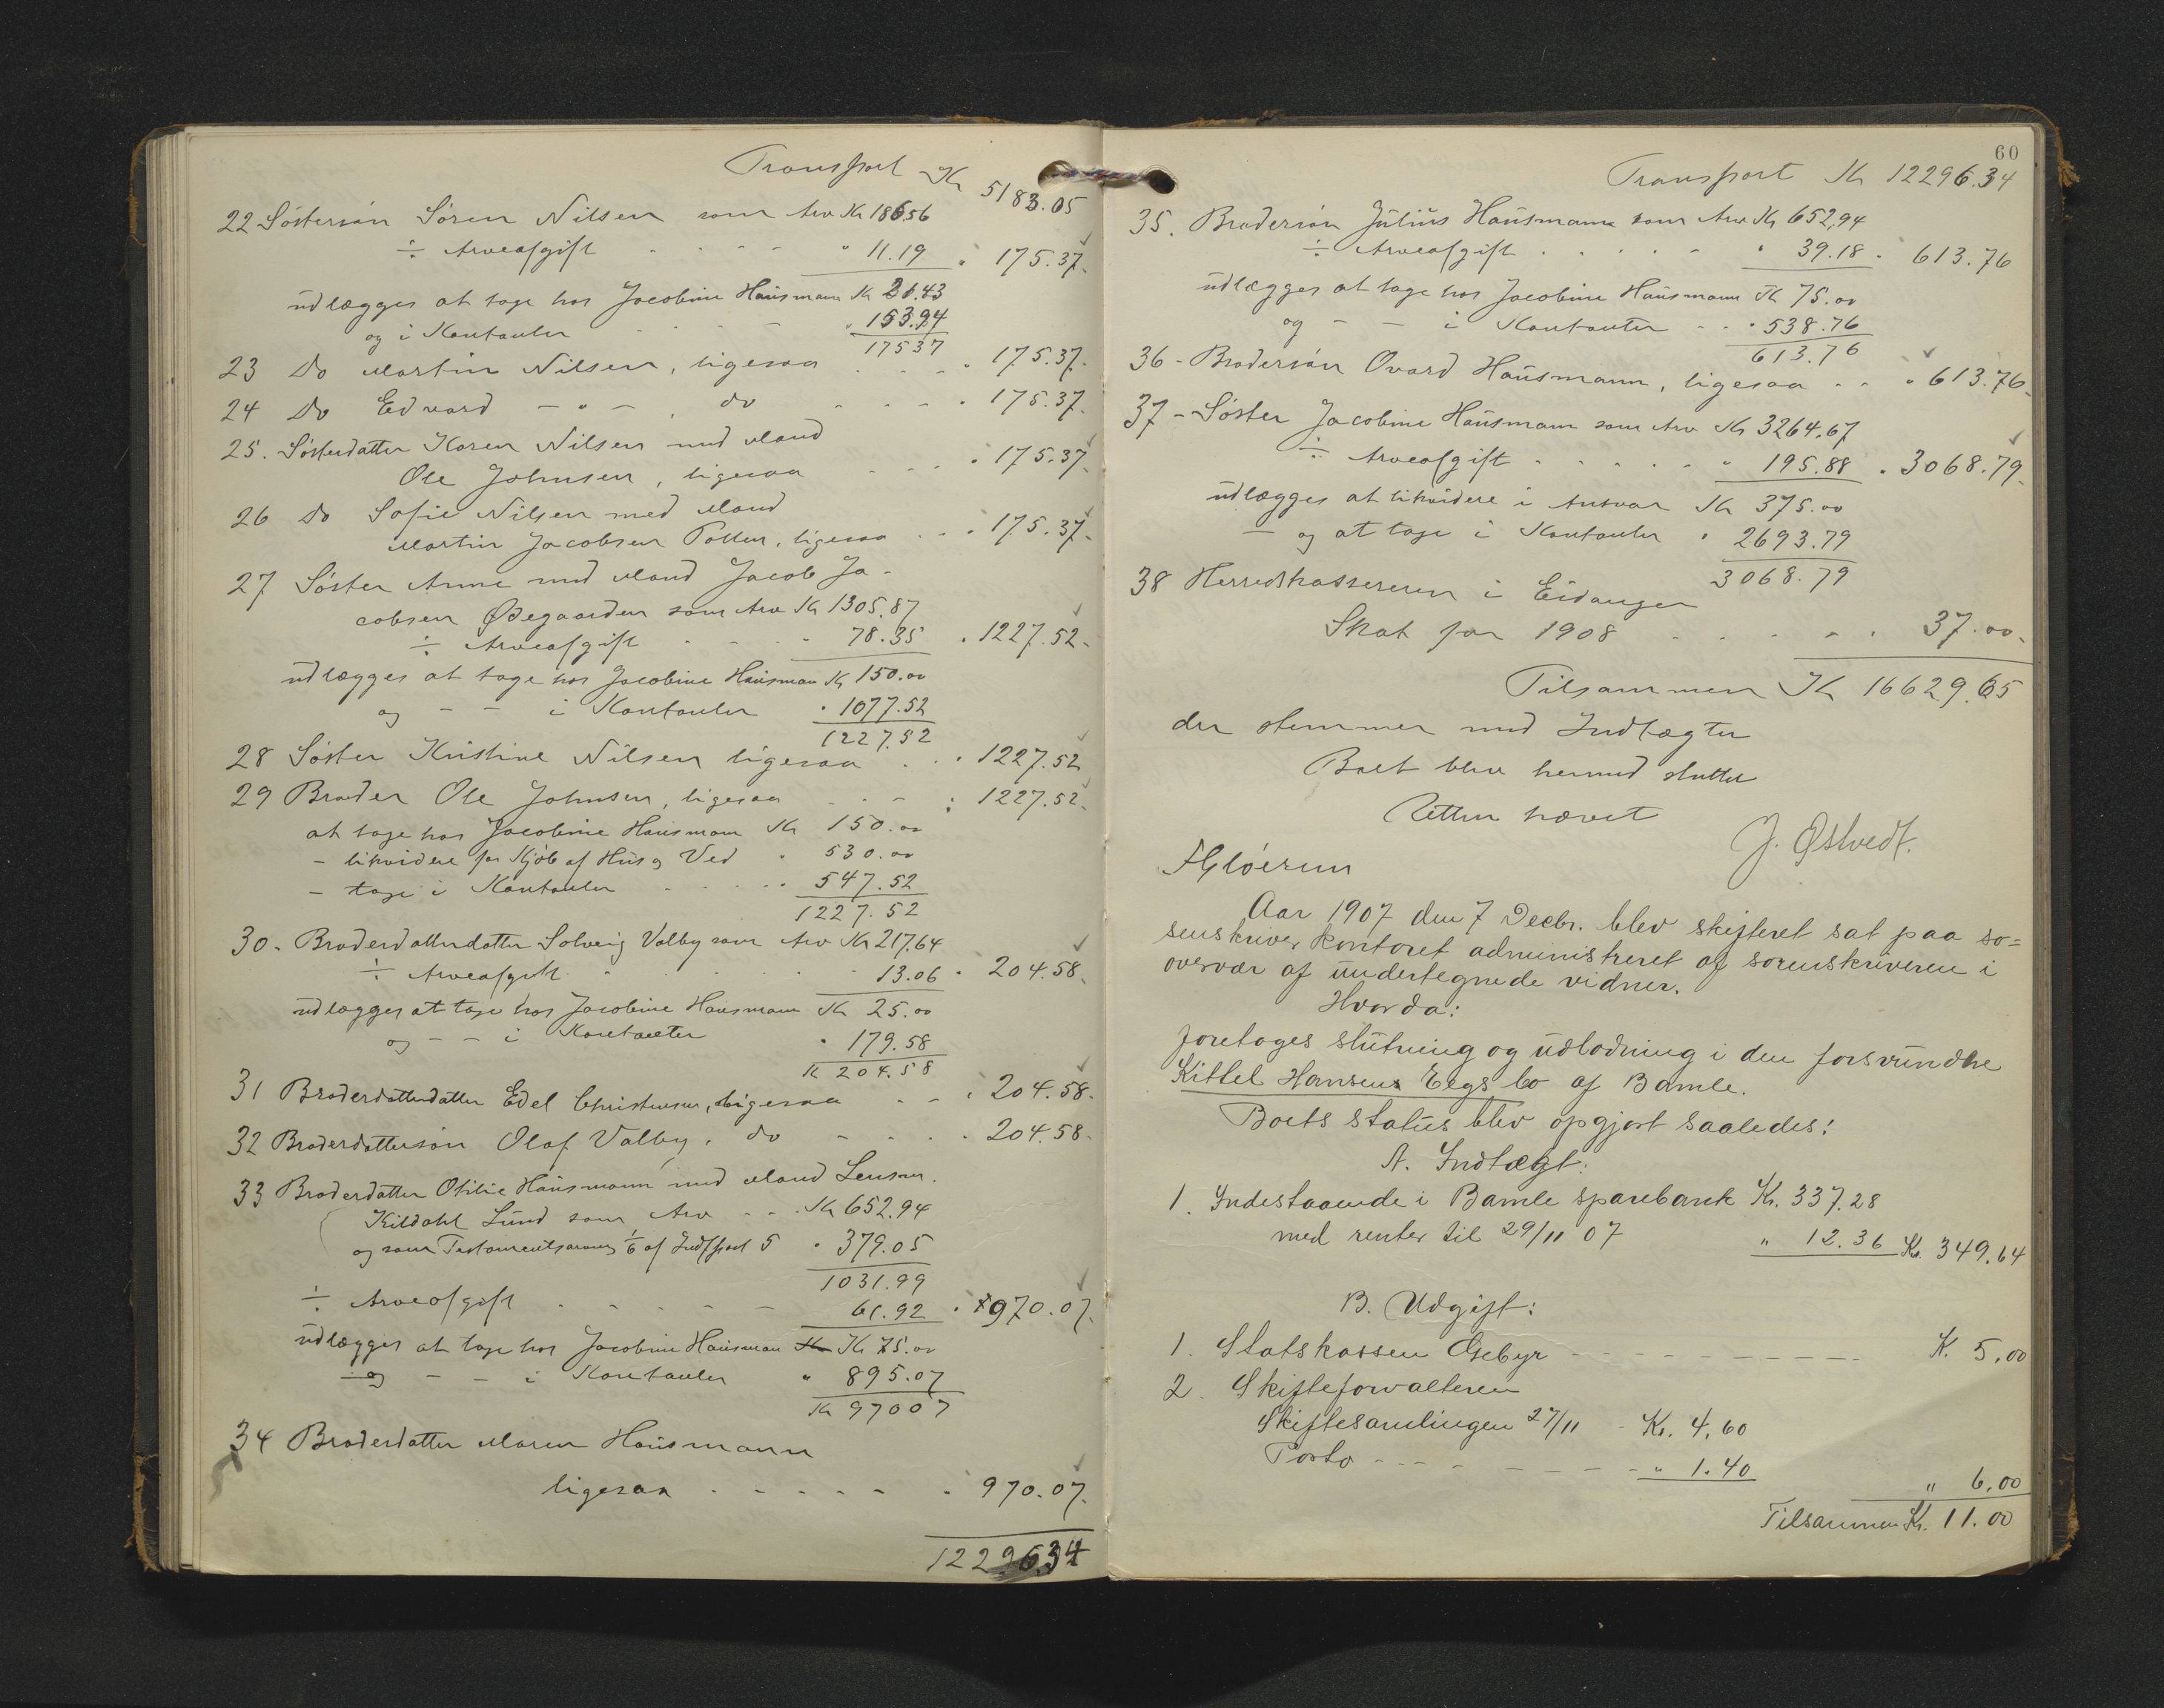 Transport Kr 5183.05
22 Söstersön Sören Nilsen som Arv Kr 186.56
÷ Arveafgift - - - - " 11.19 " 175.37.
udlægges at tage hos Jacobine Hausmann Kr 21.43
og i Kontanter - - - " 153.94
175 37
23 Do Martin Nilsen, ligesaa - - - " 175.37.
24 Do Edvard - " - , do - - - - " 175.37.
25. Sösterdatter Karen Nilsen med Mand
Ole Johnsen, ligesaa - - - " 175.37.
26 Do Sofie Nilsen med Mand
Martin Jacobsen Potten, ligesaa - - " 175.37.
27 Söster Anne med Mand Jacob Ja-
cobsen Ødegaarden som Arv Kr 1305.87
÷ Arveafgift - - - " 78.35 " 1227.52.
udlægges at tage hos Jacobine Hausman Kr 150.00
og - - i Kontanter " 1077.52
1227.52
28 Söster Kristine Nilsen ligesaa - - " 1227.52
29 Broder Ole Johnsen, ligesaa - - - " 1227.52.
at tage hos Jacobine Hausmann Kr 150.00
- likvidere for Kjöb af Hus og Ved " 530.00
- tage i Kontanter - - - - " 547.52
1227.52
30. Broderdatterdatter Solveig Valby som Arv Kr 217.64
÷ Arveafgift " - - - - 13.06 " 204.58.
udlægges at tage hos Jacobine Hausmann Kr 25.00
og - - i Kontanter " 179.58
K 204.58
31 Broderdatterdatter Edel Christensen, ligesaa - - " 204.58.
32 Broderdattersön Olaf Valby, do - - - " 204.58.
33 Broderdatter Otilie Hausmann med Mand Lensm.
Kildahl Lund som Arv - - Kr 652.94
og som Testamentsarving 1/6 af Indfört 5 " 379.05
1031.99
÷ Arveafgift - - - - - 61.92 " 970.07.
udlægges at tage hos Jacobine Hausman Kr 75.00
og - - i Kontanter " 895.07
Kr 970 07
34 Broderdatter Maren Hausmann
ligesaa - - - - - " 970.07.
12296.34
60
Transport Kr 12296.34
35. Brodersön Julius Hausmann som Arv Kr 652,94
÷ Arveafgift - - - - - " 39.18 " 613.76
udlægges at tage hos Jacobine Hausmann Kr 75.00
og - - i Kontanter - - " 538.76
613.76
36 - Brodersön Ovard Hausmann, ligesaa - - " 613.76.
37 - Söster Jacobine Hausmann som Arv Kr 3264.67
÷ Arveafgift - - - - - " 195.88 " 3068.79.
udlægges at likvidere i Ansvar Kr 375.00
- og at tage i Kontanter " 2693.79
3068.79
38 Herredskassereren i Eidanger
Skat for 1908 - - - - - 37.00.
Tilsammen Kr 16629.65
der stemmer med Indtægten
Boet blev hermed sluttet
Retten hævet
J. Østvedt.
Aar 1907 den 7 Decbr. blev skifteret sat paa so=
renskriverkontoret administreret af sorenskriveren i
overvær af undertegnede vidner.
Hvorda:
foretoges slutning og udlodning i den forsvundne
Kittel Hansens Eegs bo af Bamle.
Boets status blev opgjort saaledes:
A. Indtægt:
1. Indestaaende i Bamle sparebank Kr. 337.28
med renter til 29/11 07 " 12.36 Kr. 349.64
B. Udgift:
1. Statskassen Gebyr - - - - - - - - - K. 5,00
2. Skifteforvalteren
Skiftesamlingen 27/11 - Kr. 4,60
Porto - - - - - - - - " 1.40
" 6,00
Tilsammen Kr. 11.00